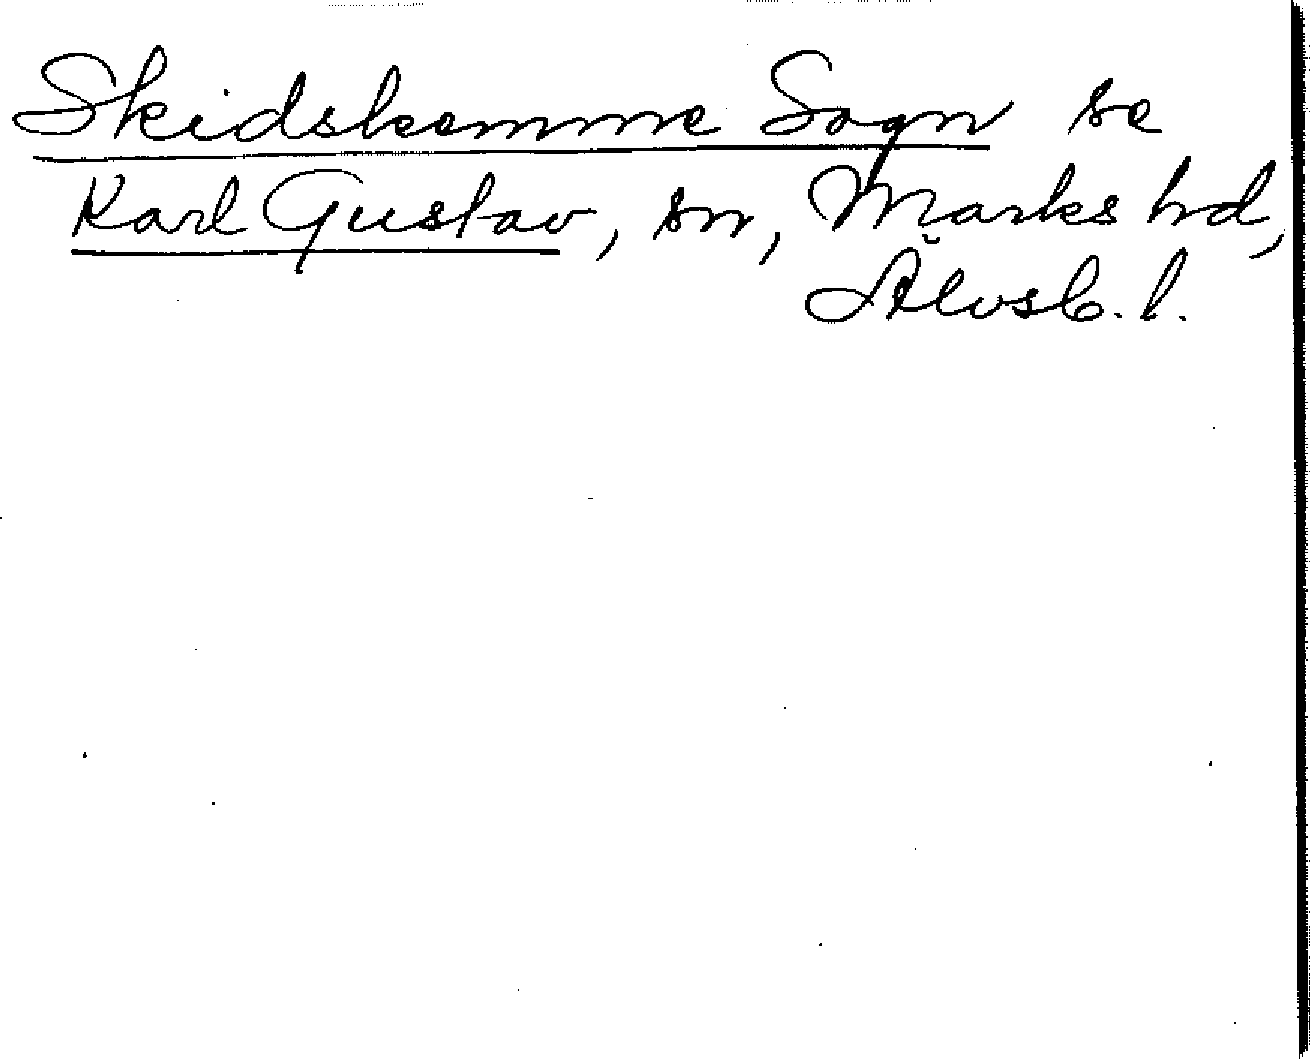 Skidskemme Sogn se
Karl Gustav, sn, Marks hd,
Älvsb. l.